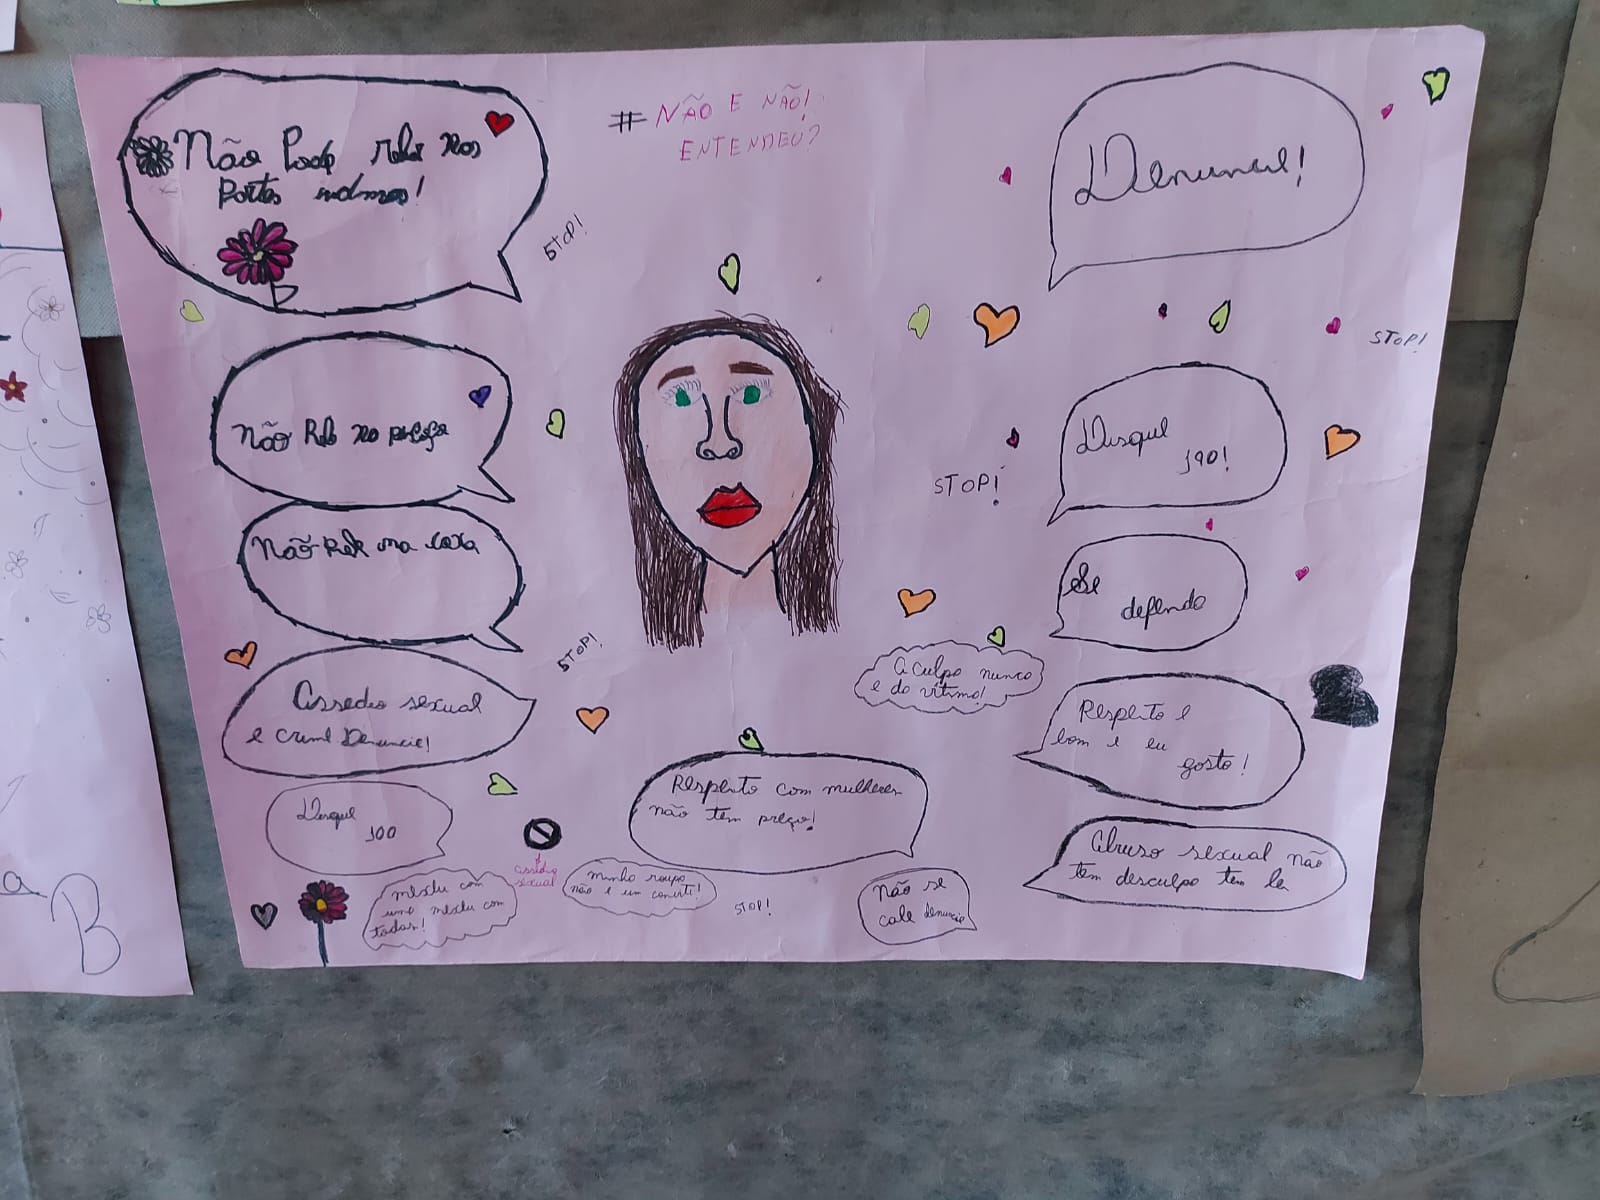 # NÃO E NÃO!
ENTENDEU?
Não Pode relar nos
Partes
STOP!
Denuncie!
STOP!
não Rele no pescoço
Disque
190!
STOP!
Não Rele na coxa
Se
defenda
STOP!
A culpa nunca
é da vítima!
Assedio sexual
é crime Denuncie!
Respeito é
bom e eu
gosto!
Respeito com mulheres
não tem preço!
Disque
100
Abuso sexual não
tem desculpa tem lei
assédio
sexual
minha roupa
não é um convite!
mexeu com
uma mexeu com
todas!
STOP!
Não se
cale denuncie
a
B